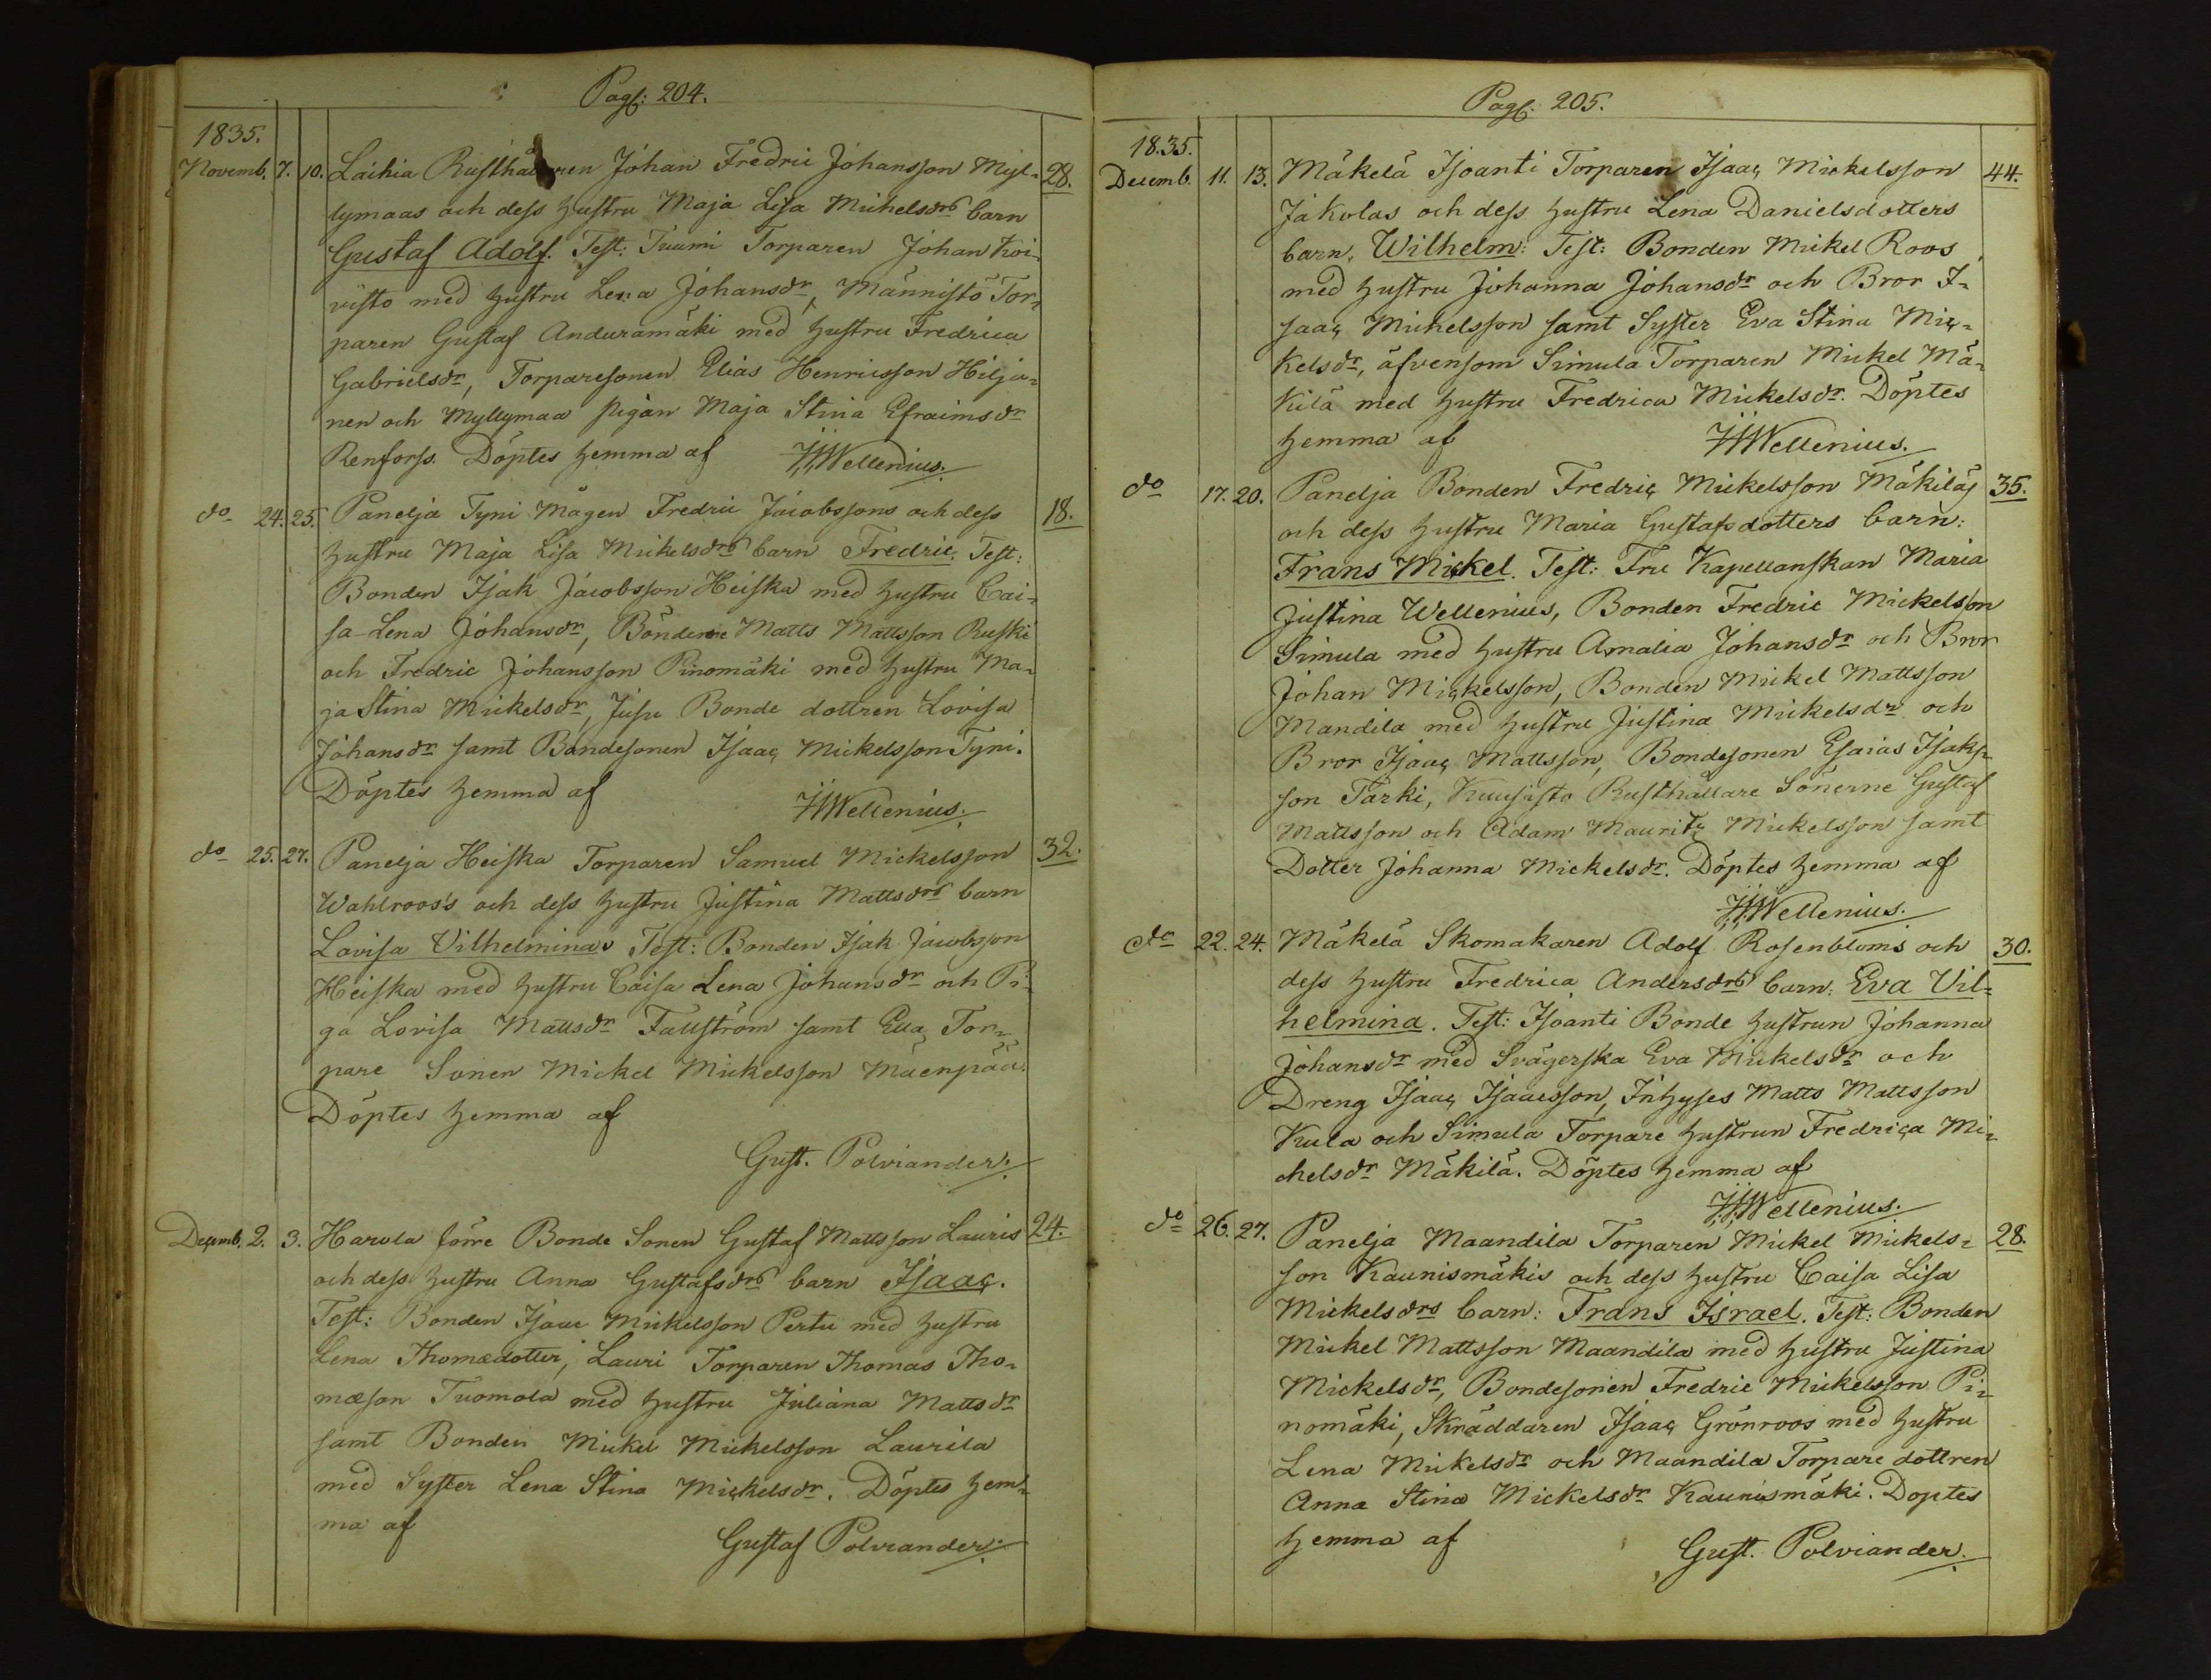 Pag: 204.
1835.
Novemb. 7. 10. Laihia Rusthållaren Johan Fredric Johansson Myl- 28.
lymaas och dess hustru Maja Lisa Michelsdrs barn
Gustaf Adolf. Test: Tuumi Torparen Johan Koi-
visto med hustru Lena Johansdr, Männistö Tor-
paren Gustaf Anduramäki med hustru Fredrica
Gabrielsdr, Torparesonen Elias Henricsson Hilja-
nen och Myllymaa pigan Maja Stina Efraimsdr
Renforss. Döptes hemma af JHWellenius.
do 24. 25. Panelja Tyni Mågen Fredric Jacobssons och dess 18.
hustru Maja Lisa Mickelsdrs barn Fredric. Test:
Bonden Isak Jacobsson Heiska med hustru Cai-
sa-Lena Johansdr, Bönderne Matts Mattsson Ruski
och Fredric Johansson Pinomäki med hustru Ma-
ja Stina Mickelsdr, Jusu Bonde dottren Lovisa
Johansdr samt Bondesonen Isaac Mickelsson Tyni.
Döptes hemma af JHWellenius.
do 25. 27. Panelja Heiska Torparen Samuel Mickelsson 32.
Wahlroos's och dess hustru Justina Mattsdrs barn
Lovisa Vilhelmina. Test: Bonden Isak Jacobsson
Heiska med hustru Caisa Lena Johansdr och Pi-
ga Lovisa Mattsdr Fallström samt Ella Tor-
pare Sonen Mickel Mickelsson Mäenpää.
Döptes hemma af
Gust. Polviander.
Decemb. 2. 3. Harola förre Bonde Sonen Gustaf Mattsson Lauris 24.
och dess hustru Anna Gustafsdrs barn Isaac.
Test: Bonden Isaac Mickelsson Pertu med hustru
Lena Thomædotter, Lauri Torparen Thomas Tho-
mæson Tuomola med hustru Juliana Mattsdr
samt Bonden Mickel Mickelsson Laurila
med Syster Lena Stina Mickelsdr. Döptes hem-
ma af Gustaf Polviander.
Pag: 205.
1835.
Decemb. 11. 13. Mäkelä Isoanti Torparen Isaac Mickelsson 44.
Jakolas och dess hustru Lena Danielsdotters
barn, Wilhelm: Test: Bonden Mickel Roos
med hustru Johanna Johansdr och Bror I-
saac Michelsson samt Syster Eva Stina Mic-
kelsdr, äfvensom Simula Torparen Mickel Mä-
kilä med hustru Fredrica Mickelsdr. Döptes
hemma af JHWellenius.
do 17. 20. Panelja Bonden Fredric Mickelsson Mäkiläs 35.
och dess hustru Maria Gustafsdotters barn:
Frans Mickel. Test: Fru Kapellanskan Maria
Justina Wellenius, Bonden Fredric Mickelson
Simula med hustru Amalia Johansdr och Bror
Johan Mickelsson, Bonden Mickel Mattsson
Mandila med hustru Justina Mickelsdr och
Bror Isaac Mattsson, Bondesonen Esaias Isaks-
son Tarki, Kuusisto Rusthållare Sönerne Gustaf
Mattsson och Adam Mauritz Mickelsson samt
Dotter Johanna Mickelsdr. Döptes hemma af
JHWellenius.
do 22. 24. Mäkelä Skomakaren Adolf Rosenbloms och 30.
dess hustru Fredrica Andersdrs barn: Eva Vil-
helmina. Test: Isoanti Bonde hustrun Johanna
Johansdr med Svägerska Eva Mickelsdr och
Dreng Isaac Isaacsson, Inhyses Matts Mattsson
Kula och Simula Torpare hustrun Fredrica Mi-
chelsdr Mäkilä. Döptes hemma af
JHWellenius.
do 26. 27. Panelja Maandila Torparen Mickel Mickels- 28.
son Kaunismäkis och dess hustru Caisa Lisa
Mickelsdrs barn: Frans Israel. Test: Bonden
Mickel Mattsson Maandila med hustru Justina
Mickelsdr, Bondesonen Fredric Mickelsson Pi-
nomäki, Skräddaren Isaac Grönroos med hustru
Lena Mickelsdr och Maandila Torpare dottren
Anna Stina Mickelsdr Kaunismäki. Doptes
hemma af Gust. Polviander.